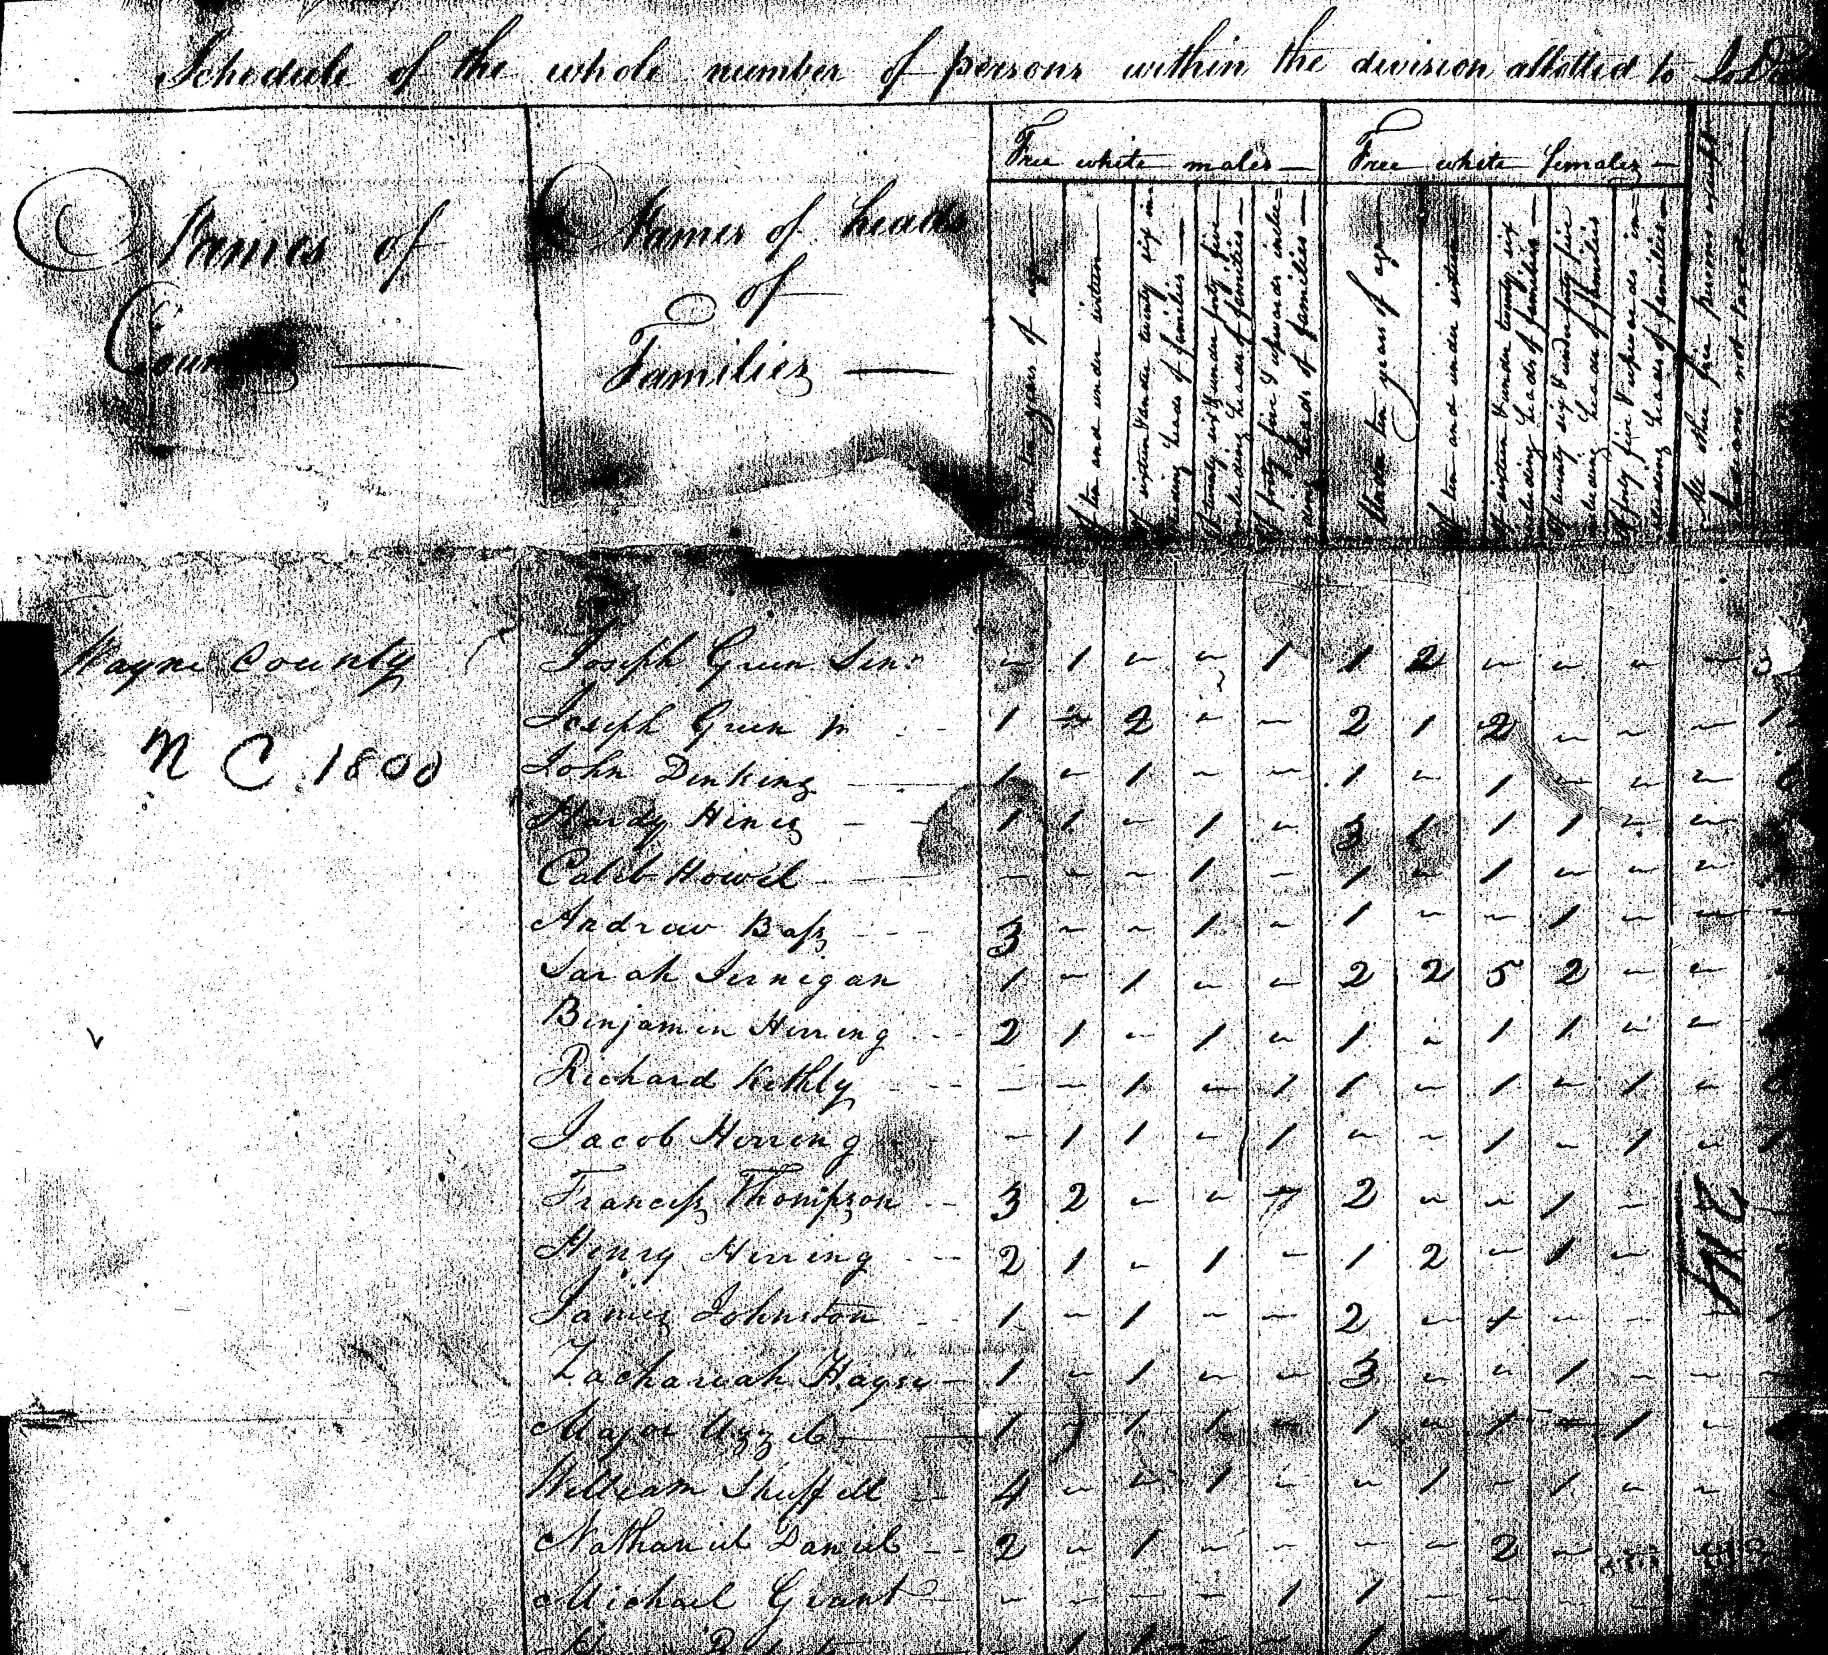 Schedule of the whole number of persons within the division allotted to
Names of
Counties
Names of heads
of
Families
Free white males
Free white females
under ten years of age
Of ten and under sixteen
Of sixteen & under twenty six in=
cluding heads of families
Of twenty six & under forty five
including heads of families
Of forty five & upwards inclu=
ding heads of families
Under ten years of age
Of ten and under sixteen
Of sixteen & under twenty six
including heads of families
Of twenty six & under forty five
including heads of families
Of forty five & upwards in=
cluding heads of families
All other free persons except
Indians not taxed
Wayne County Joseph Green Senr - 1 - - 1 1 2 - - - - 3
N C 1800
Joseph Green Jr 1 - 2 - - 2 1 2 - - - 1
John Dinkins 1 - 1 - - 1 - 1 - - -
Hardy Hines 1 1 - 1 - 3 1 1 1 - -
Caleb Howel - - - 1 - 1 - 1 - - -
Andrew Bass 3 - - 1 - 1 - - 1 - - -
Sarah Jernigan 1 - 1 - - 2 2 5 2 - -
Benjamin Herring 2 1 - 1 - 1 - 1 1 - -
Richard Kethly - - 1 - 1 1 - 1 - 1 -
Jacob Herring - 1 1 - 1 - - 1 - 1 - 1
Francis Thompson 3 2 - - 2 - - 1 -
Henry Herring 2 1 - 1 - 1 2 - 1 -
James Johnston 1 - 1 - - 2 - 1 - - - 1
Zachariah Hayse 1 - 1 - - 3 - - 1 - - -
Major Uzzel 1 1 1 - 1 - 1 - 1 -
William Shuffell 4 - - 1 - - 1 - 1 - -
Nathaniel Daniel 2 - 1 - - - - 2 -
Michael Grant - - - - 1 1 - - - -